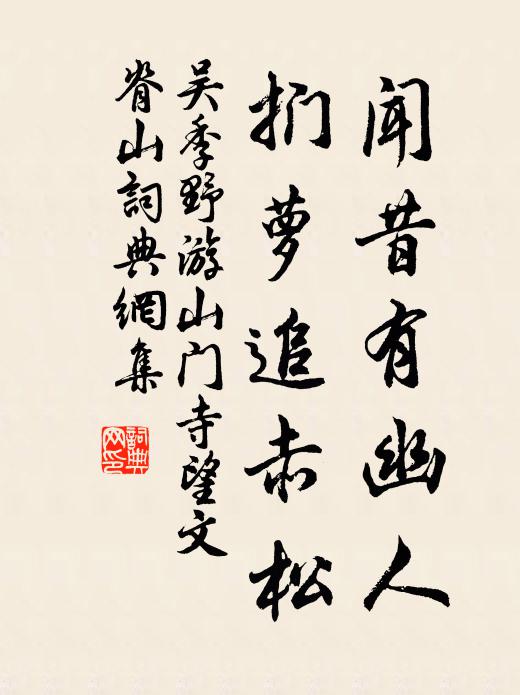 闻昔有幽人
扪萝追赤松
吴季野游山门寺望文
脊山詞典網集
詞典
网印